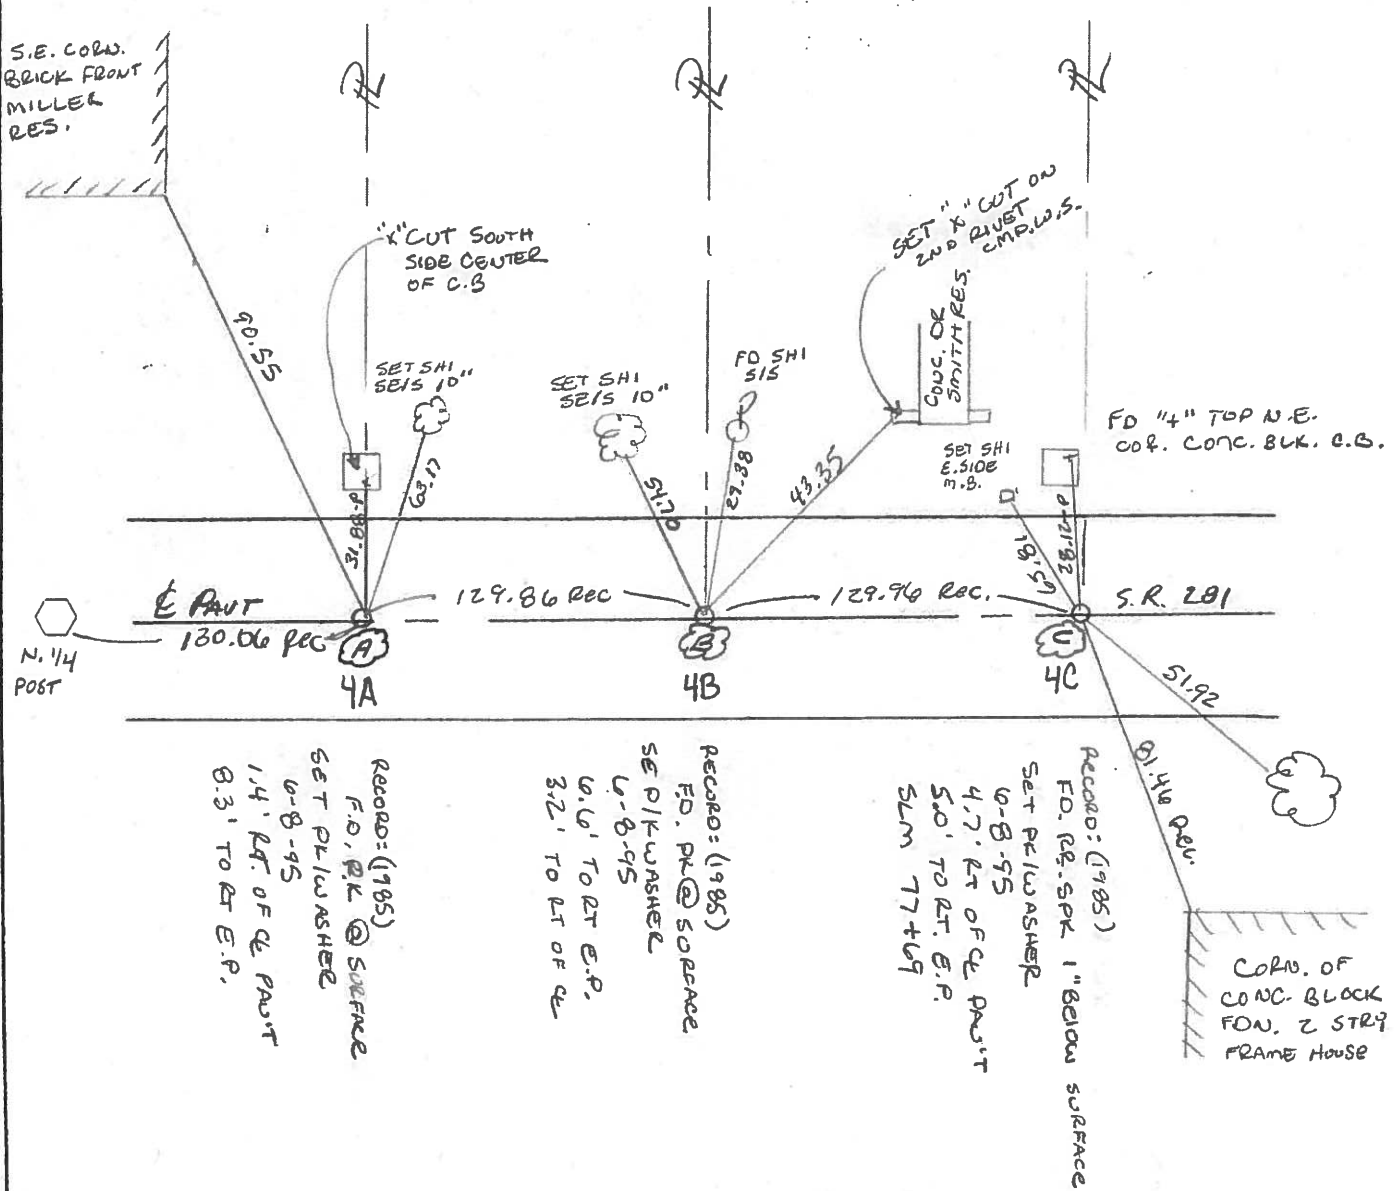 S.E. CORN.
BRICK FRONT
MILLER
RES.
"X" CUT SOUTH
SIDE CENTER
OF C.B
SET "X" CUT ON
2ND RIVET
CMP.W.S.
90.55
SET SHI
SE/S 10"
SET SHI
SE/S 10"
FD SHI
S/S
CONC. DR
SMITH RES.
FD "+" TOP N.E.
COR. CONC. BLK. C.B.
SET SHI
E.SIDE
M.B.
31.88-P
63.17
54.70
29.38
43.35
28.12-P
℄ PAV'T
130.06 REC
129.86 REC
129.96 REC.
S.R. 281
N. 1/4
POST
A
4A
B
4B
C
4C
51.92
81.46
RECORD: (1985)
F.D. P.K @ SURFACE
SET PK/WASHER
6-8-95
1.4' RT. OF ℄ PAV'T
8.3' TO RT E.P.
RECORD: (1985)
F.D. PK @ SURFACE
SE P/K WASHER
6-8-95
6.6' TO RT E.P.
3.2' TO RT OF ℄
RECORD: (1985)
FD. RR. SPK 1" BELOW SURFACE
SET PK/WASHER
6-8-95
4.7' RT OF ℄ PAV'T
5.0' TO RT. E.P.
SLM 77+69
CORN. OF
CONC. BLOCK
FDN. 2 STRY
FRAME HOUSE